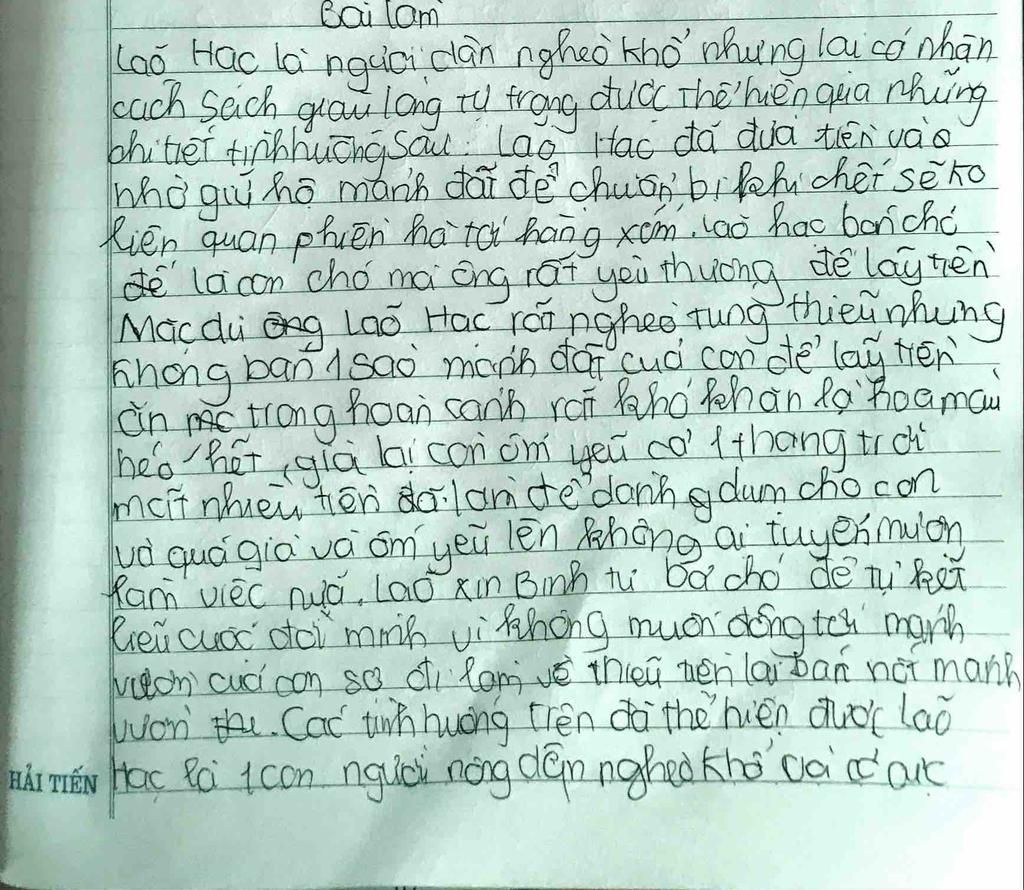 Bai lam
Laõ Hac là người dân nghèo khổ nhưng lai có nhân
cach Sach giau long tự trọng được thể hiện qua những
chi tiết tình huống sau: Laõ Hac đã đưa tiền vào
nhờ giữ hộ mảnh đất để chuẩn bị khi chết sẽ ko
liên quan phiền hà tới hàng xóm. laõ hac bán chó
để là con chó mà ông rất yêu thương để lấy tiền
Mặc dù ông Laõ Hac rất nghèo tung thiếu nhưng
không bán 1 sào mảnh đất cuả con để lấy tiền
ăn mc trong hoàn cảnh rất khó khăn là hoa màu
héo hết, già lại còn ốm yếu cơ 1 thang trời
mất nhiều tiền đã làm để dành gdum cho con
và quá già và ốm yếu lên không ai tuyển mượn
làm việc nữa. Laõ xin Binh tư bả chó để tự kết
liễu cuộc đời mình vì không muốn động tới mảnh
vườn cuả con sợ đi làm về thiếu tiền lại bán nốt manh
vườn thu. Các tình huống trên đã thể hiện được laõ
Hạc là 1 con người nông dân nghèo khổ và cơ cực
HẢI TIẾN